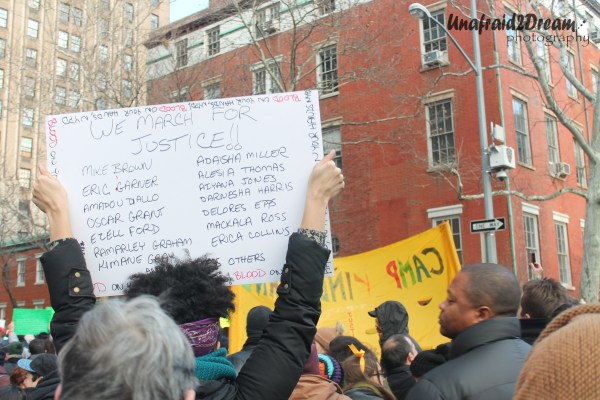 Unafraid2Dream
photography
BLOOD ON YOUR HANDS
WE MARCH FOR
JUSTICE!!
MIKE BROWN
ERIC GARNER
AMADOU DIALLO
OSCAR GRANT
EZELL FORD
RAMARLEY GRAHAM
KIMANI GRAY
ADAISHA MILLER
ALESIA THOMAS
AIYANA JONES
DARNESHA HARRIS
DELORES EPPS
MACKALA ROSS
ERICA COLLINS
OTHERS
BLOOD ON
CAMP
ONE WAY